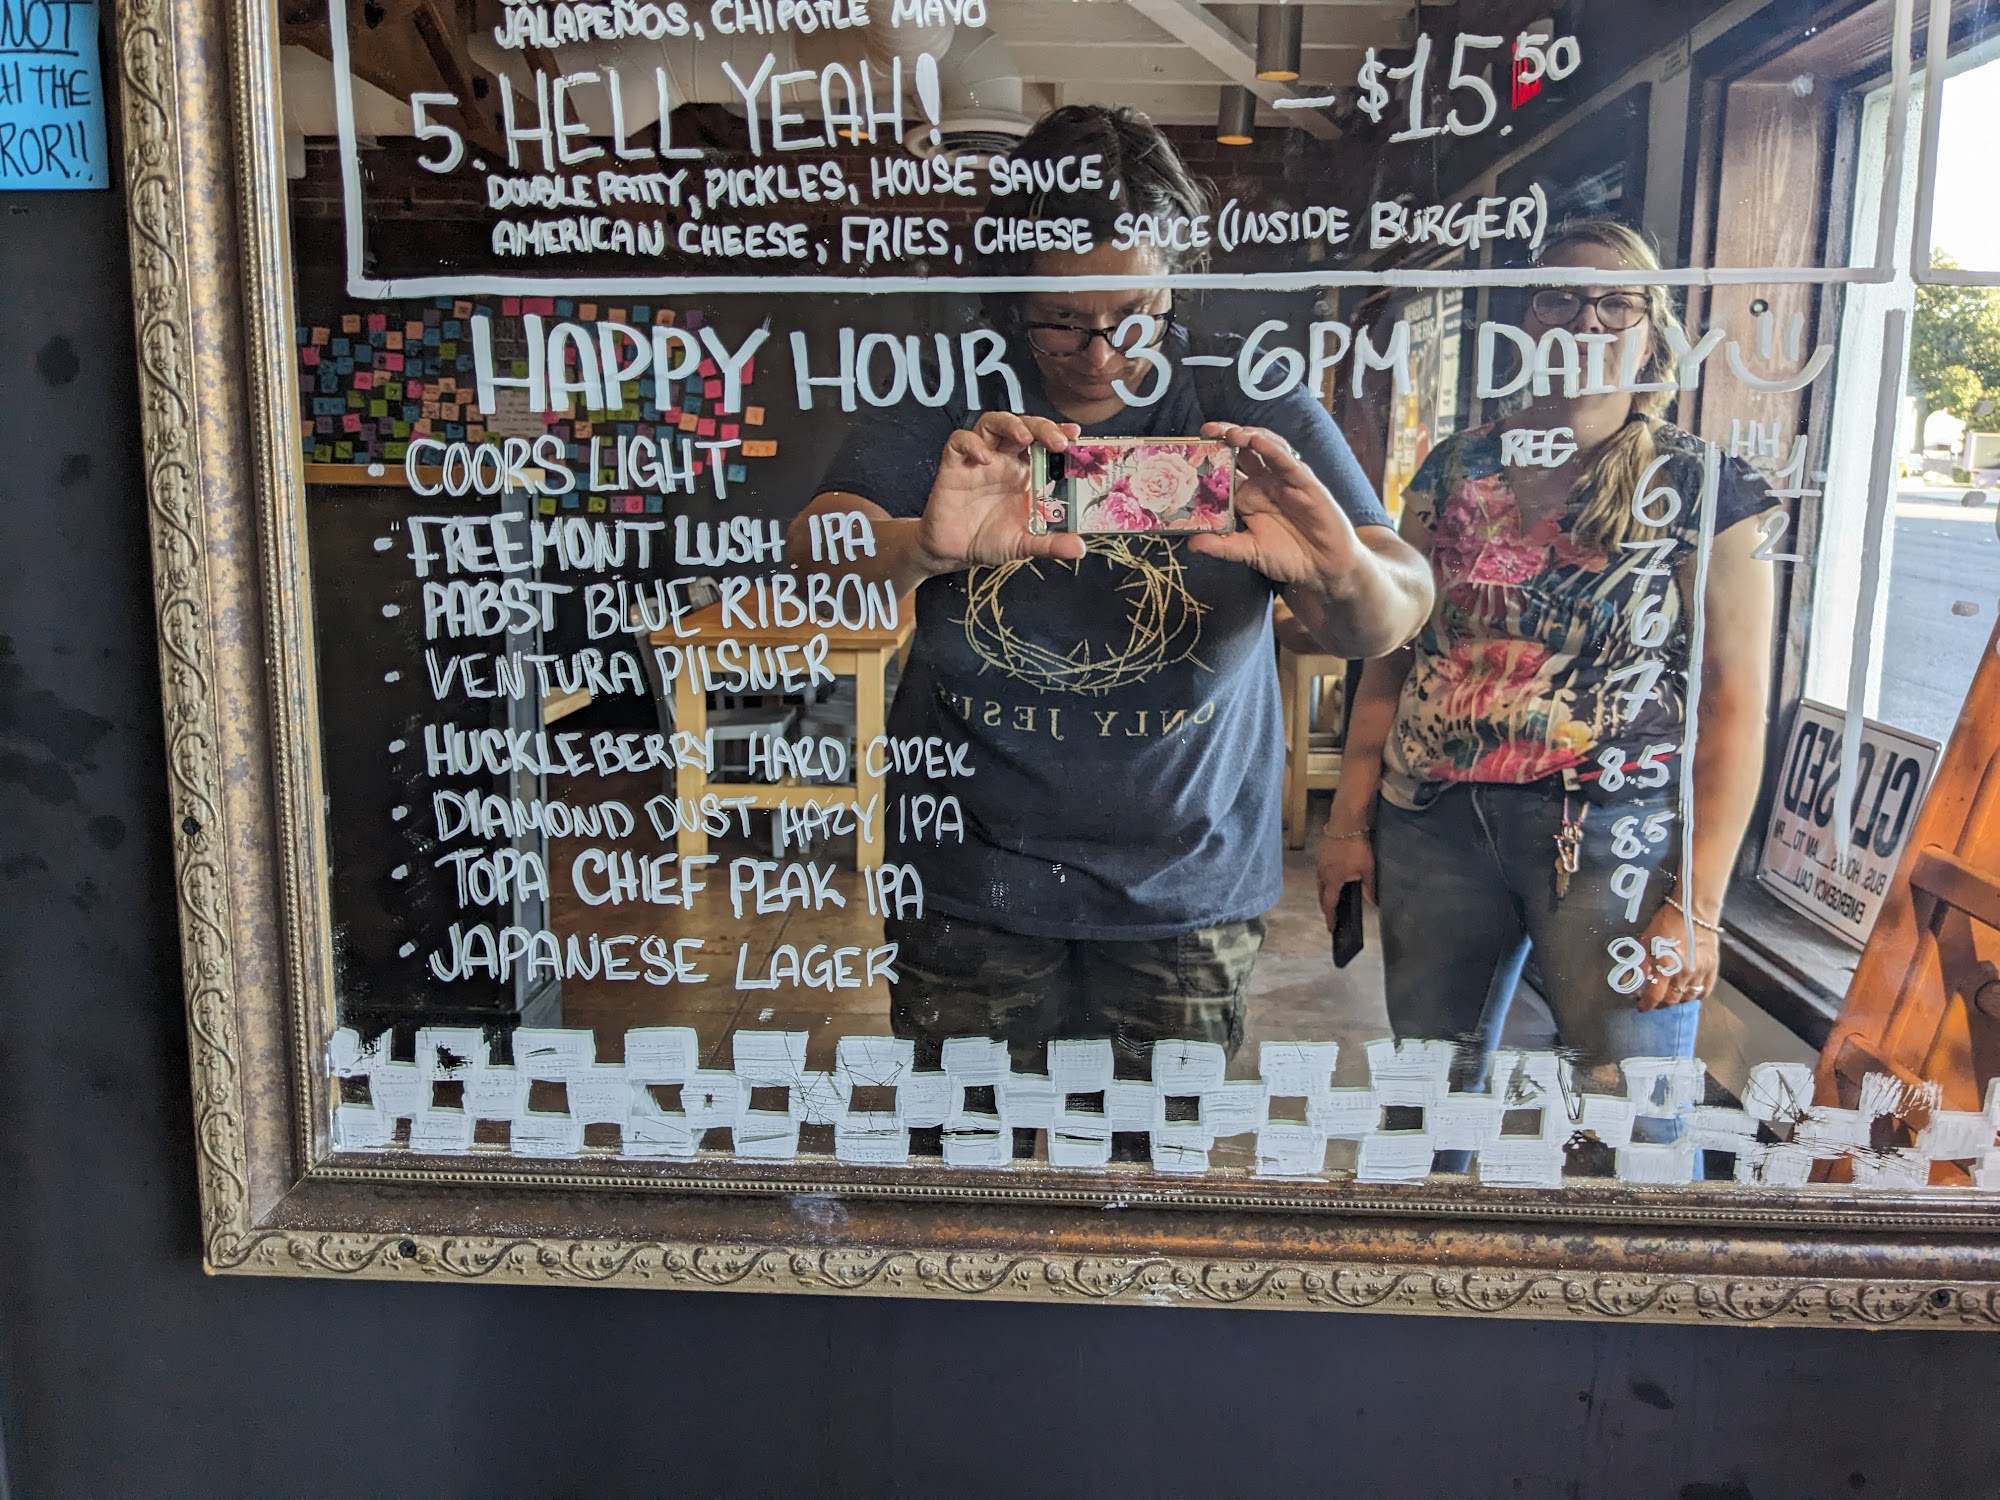 NOT
H THE
ROR!!
JALAPEÑOS, CHIPOTLE MAYO
5. HELL YEAH! - $15.50
DOUBLE PATTY, PICKLES, HOUSE SAUCE,
AMERICAN CHEESE, FRIES, CHEESE SAUCE (INSIDE BURGER)
HAPPY HOUR 3-6PM DAILY
REG HH
• COORS LIGHT 6 1/2
• FREEMONT LUSH IPA 7
• PABST BLUE RIBBON 6
• VENTURA PILSNER 7
• HUCKLEBERRY HARD CIDER 8.5
• DIAMOND DUST HAZY IPA 8.5
• TOPA CHIEF PEAK IPA 9
• JAPANESE LAGER 8.5
ONLY JESU
CLOSED
BUS. HOURS AM TO PM
EMERGENCY CALL